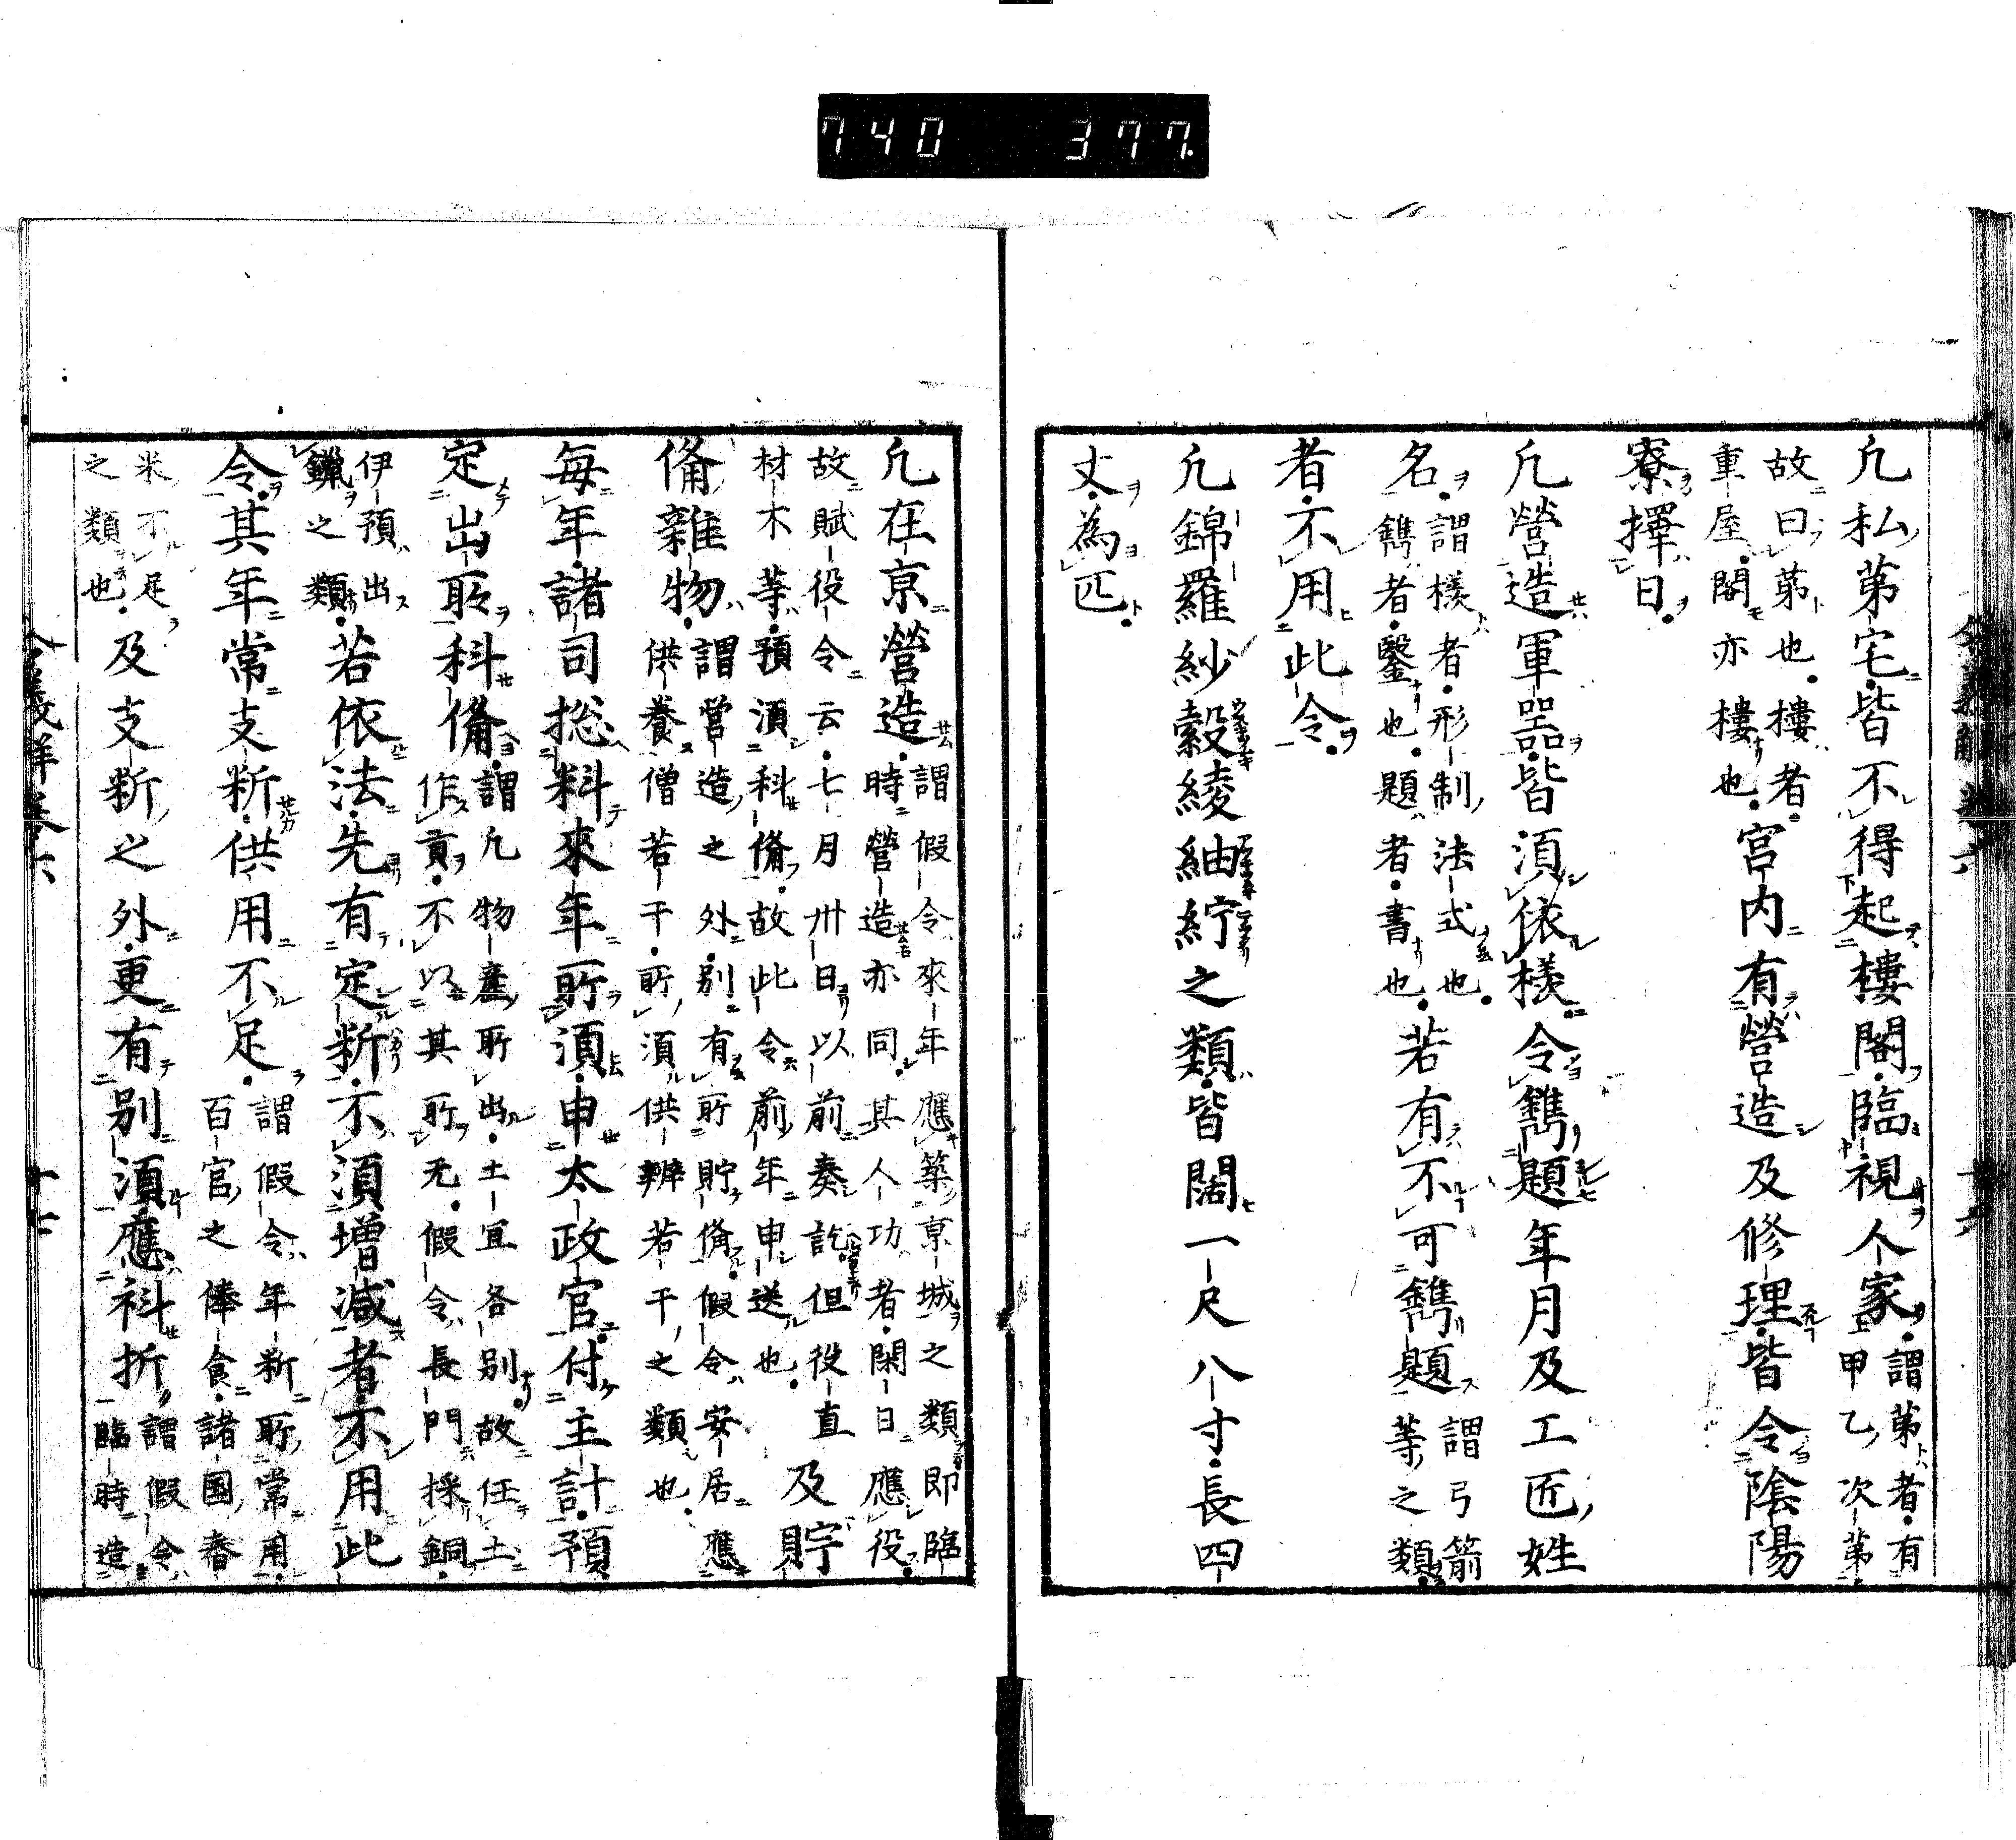 740 377
凢私第宅皆不得起樓閣臨視人家謂第者有甲乙次第
故曰第也樓者重屋閣亦樓也宮内有營造及修理皆令陰陽
寮擇日
凢營造軍器皆須依樣令鐫題年月及工匠姓
名謂樣者形制法式也鐫者鑿也題者書也若有不可鐫題謂弓箭等之類
者不用此令
凢錦羅紗縠綾紬紵之類皆闊一尺八寸長四
丈為匹
凢在京營造謂假令來年應築京城之類即臨時營造亦同其人功者閑日應役
故賦役令云七月卅日以前奏訖但役直材木等預須科備故此令前年申送也及貯
備雜物謂營造之外別有所貯備假令安居應供養僧若干所須供辨若干之類也
每年諸司総料來年所須申太政官付主計預
定出所科備謂凢物產所出土宜各別故任土作貢不以其所无假令長門採銅
伊預出鑞之類若依法先有定断不須增減者不用此
令其年常支断供用不足謂假令年断所常用百官之俸食諸国舂
米不足之類也及支断之外更有別須應科折謂假令臨時造